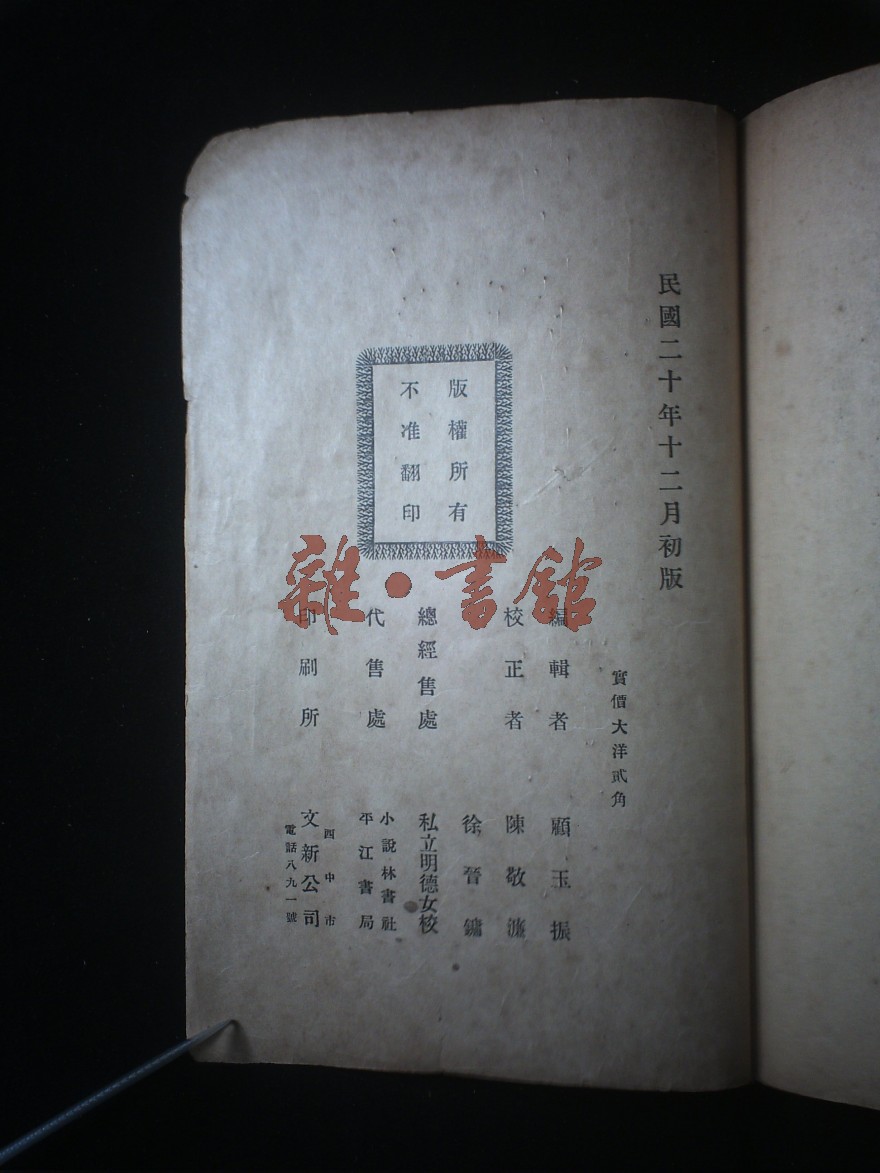 民國二十年十二月初版
實價大洋貳角
編輯者 顧玉振
校正者 陳敬濂
徐晉鏞
總經售處 私立明德女校
代售處 小說林書社
平江書局
印刷所 四中市
文新公司
電話八九一號
版權所有
不准翻印
雜·書館